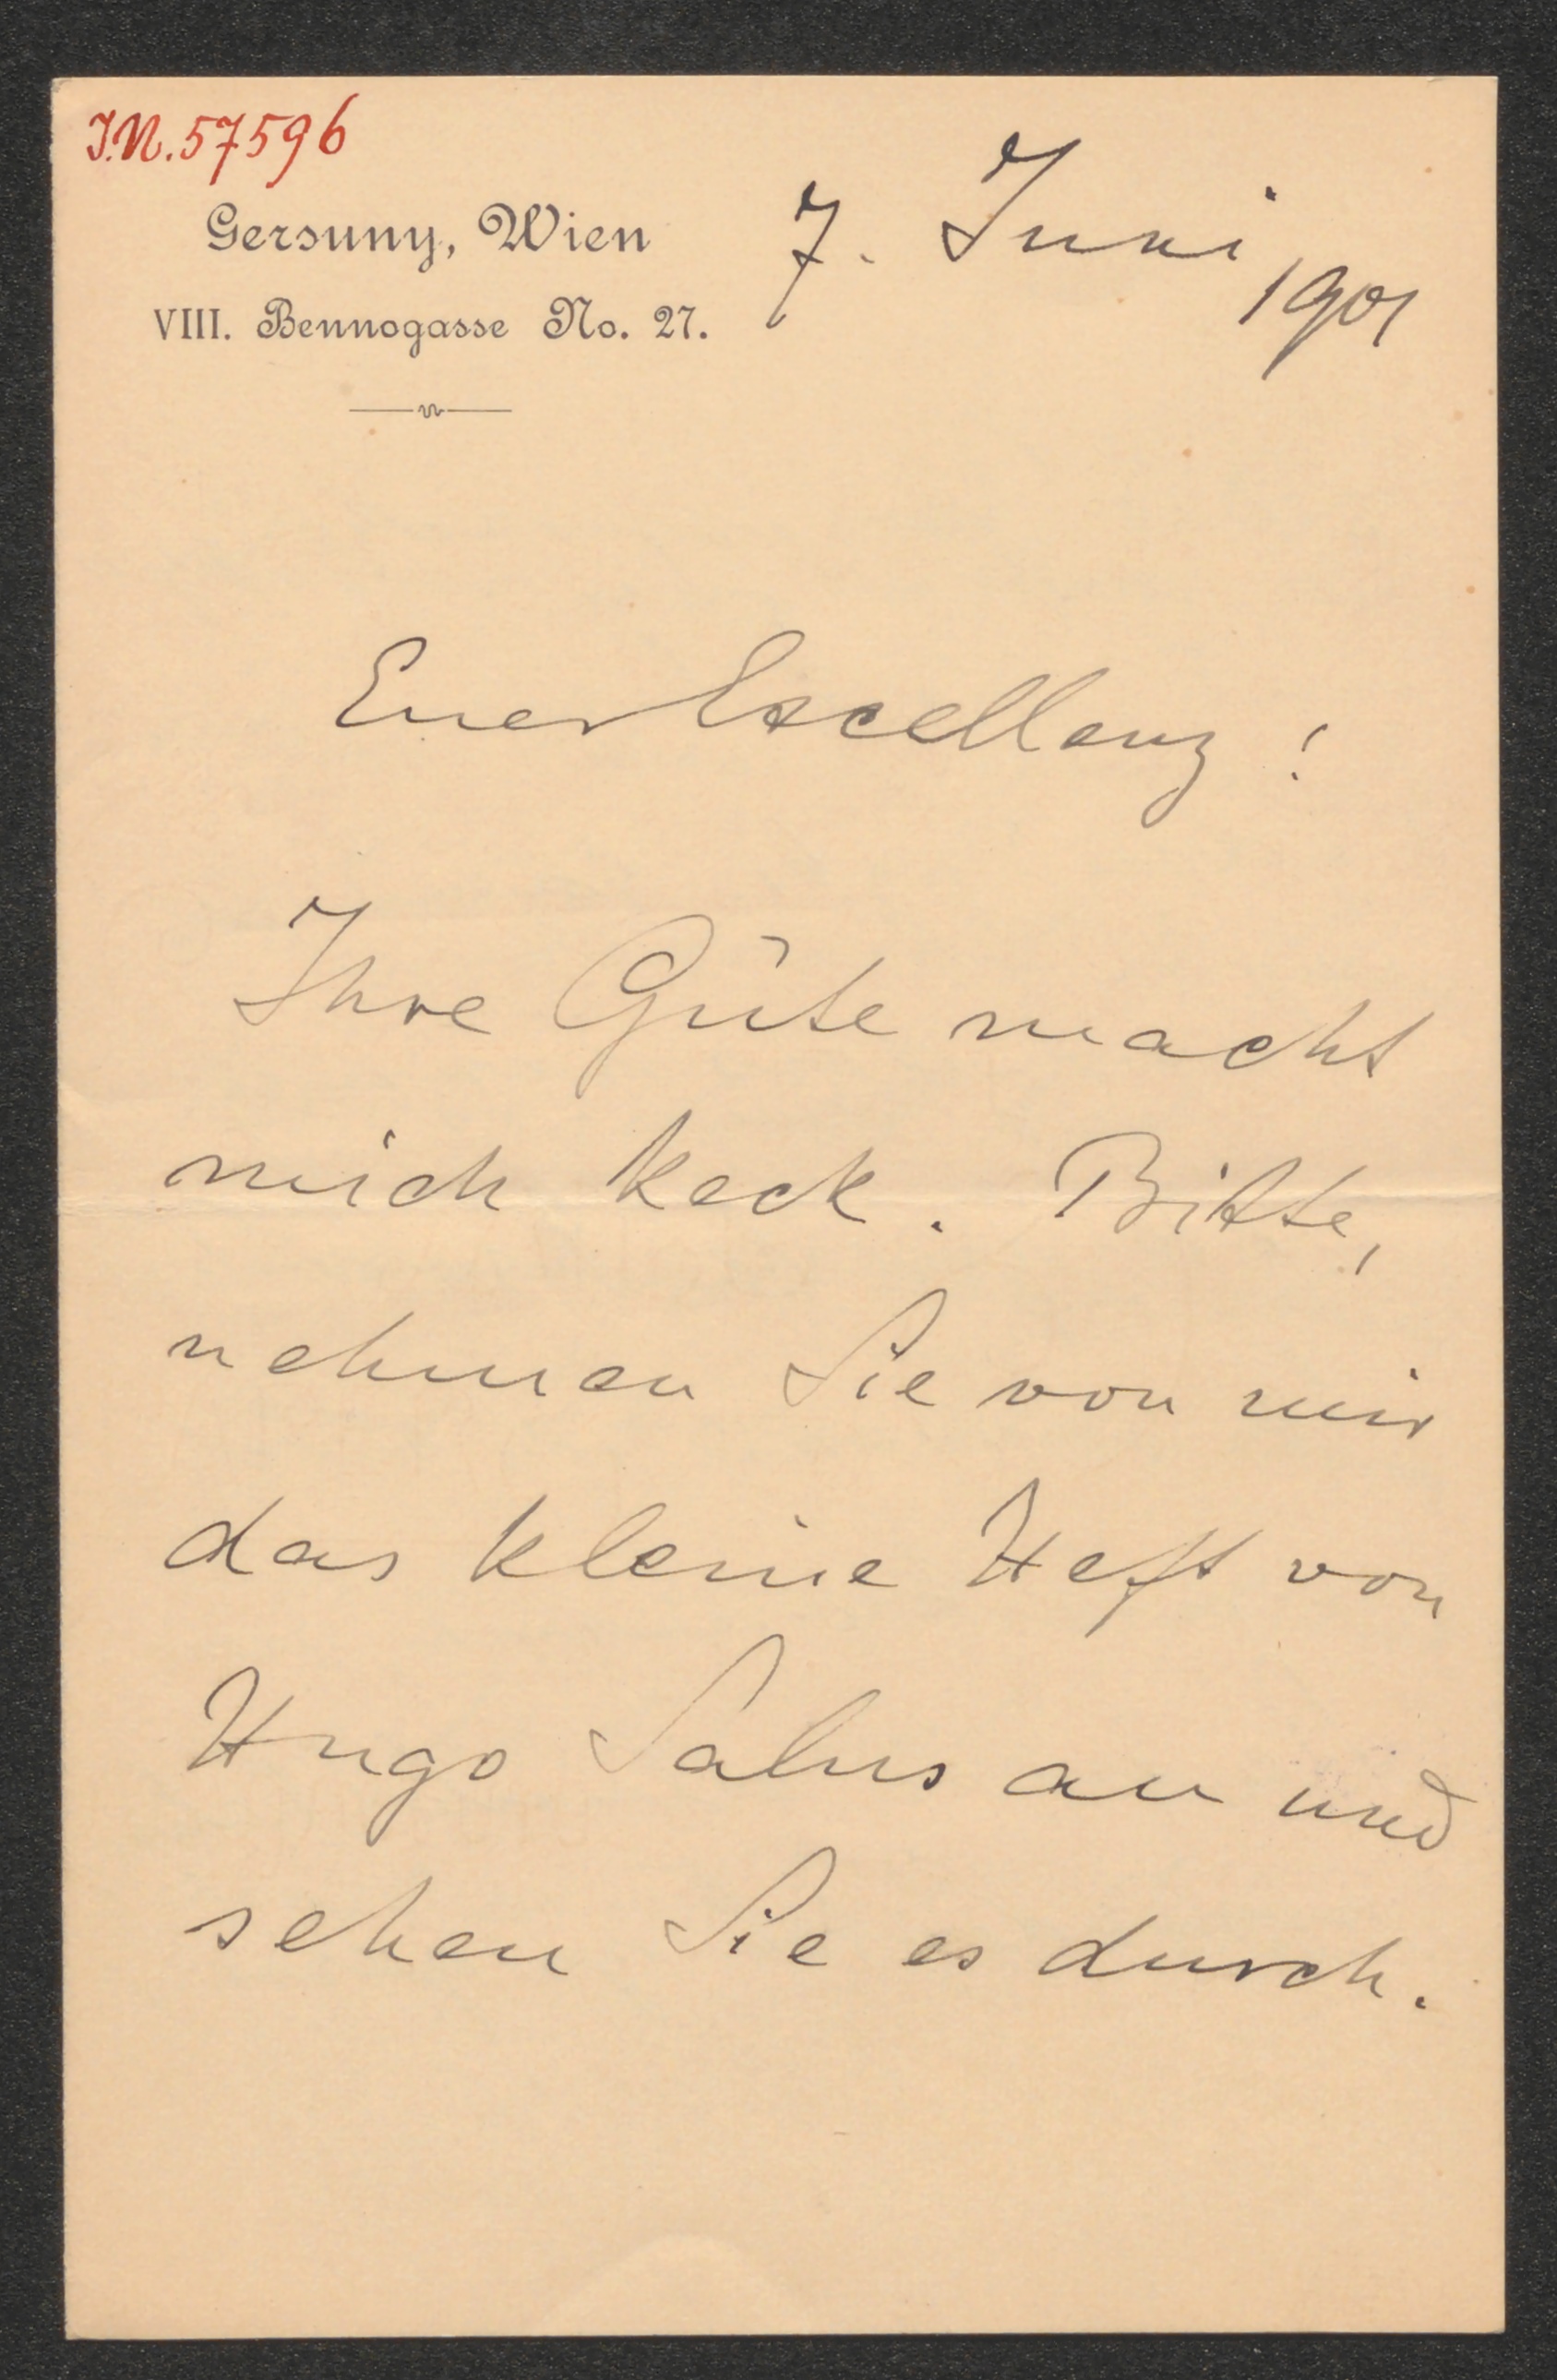 J.N. 57596
Gersuny, Wien
VIII. Bennogasse No. 27.
7. Juni
1901
Euer Excellenz!
Ihre Güte macht
mich keck. Bitte,
nehmen Sie von mir
das kleine Heft von
Hugo Salus an und
sehen Sie es durch.